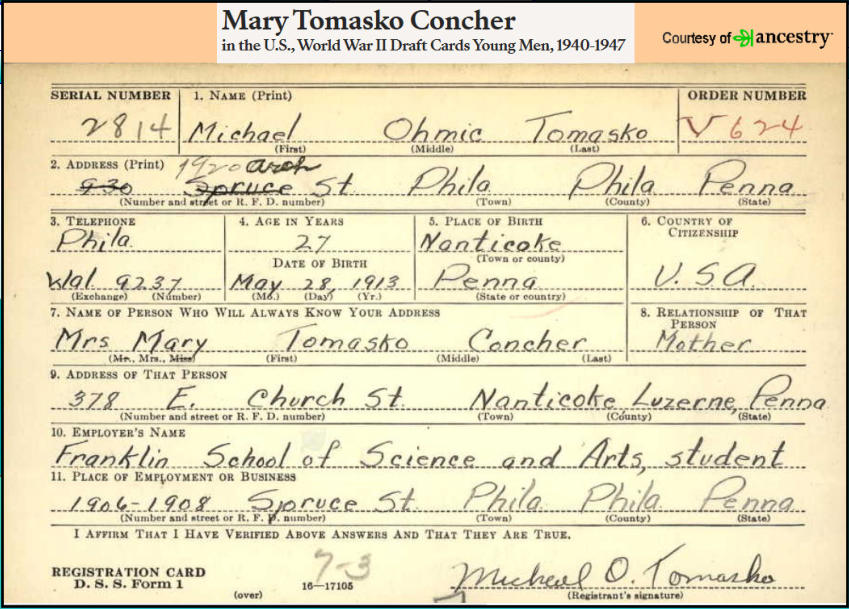 Mary Tomasko Concher
in the U.S., World War II Draft Cards Young Men, 1940-1947
Courtesy of ancestry
SERIAL NUMBER 1. NAME (Print) ORDER NUMBER
2814 Michael Ohmic Tomasko V624
(First) (Middle) (Last)
2. ADDRESS (Print) 1920 Arch
930 Spruce St. Phila Phila Penna
(Number and street or R. F. D. number) (Town) (County) (State)
3. TELEPHONE 4. AGE IN YEARS 5. PLACE OF BIRTH 6. COUNTRY OF
CITIZENSHIP
Phila. 27 Nanticoke
DATE OF BIRTH (Town or county)
Wal 9237 May 28, 1913 Penna U.S.A.
(Exchange) (Number) (Mo.) (Day) (Yr.) (State or country)
7. NAME OF PERSON WHO WILL ALWAYS KNOW YOUR ADDRESS 8. RELATIONSHIP OF THAT
PERSON
Mrs Mary Tomasko Concher Mother
(Mr., Mrs., Miss) (First) (Middle) (Last)
9. ADDRESS OF THAT PERSON
378 E. Church St. Nanticoke Luzerne, Penna
(Number and street or R. F. D. number) (Town) (County) (State)
10. EMPLOYER'S NAME
Franklin School of Science and Arts, student
11. PLACE OF EMPLOYMENT OR BUSINESS
1906-1908 Spruce St. Phila. Phila. Penna
(Number and street or R. F. D. number) (Town) (County) (State)
I AFFIRM THAT I HAVE VERIFIED ABOVE ANSWERS AND THAT THEY ARE TRUE.
REGISTRATION CARD 7-3 Micheal O. Tomasko
D. S. S. Form 1 16—17105
(over) (Registrant's signature)